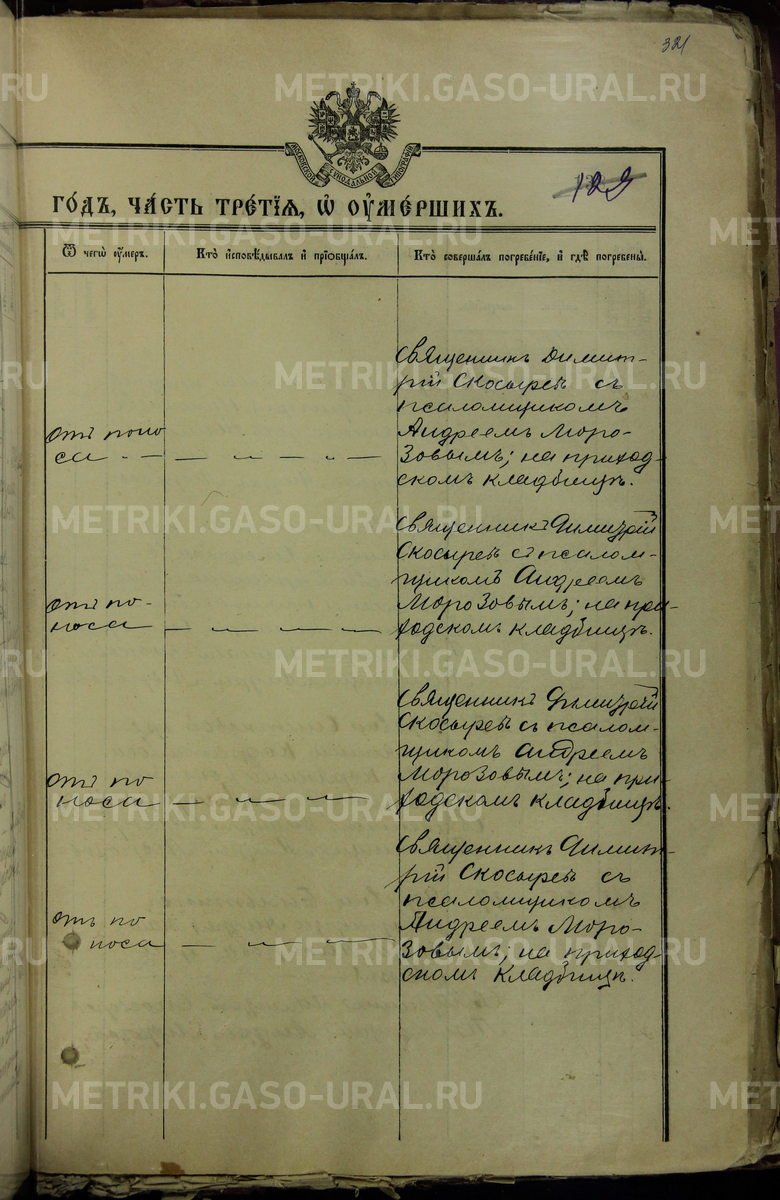 321
МОСКОВСКОЙ СѴНОДАЛЬНОЙ
129
ГО́ДЪ, ЧА́СТЬ ТРЕ́ТЇѦ, Ѡ҆ ОУ҆МЕ́РШИХЪ.
Ѿ чегѡ̀ оу҆́меръ.
Кто̀ и҆сповѣ́дывалъ и҆ прїѡбща́лъ.
Кто̀ соверша́лъ погребе́нїе, и҆ гдѣ̀ погребены̀.
Священникъ Димит-
рій Скосыревъ съ
псаломщикомъ
Андреемъ Моро-
зовымъ; на приход-
скомъ кладбищѣ.
отъ поно
са
Священникъ Димитрій
Скосыревъ съ псалом-
щикомъ Андреемъ
Морозовымъ; на при-
ходскомъ кладбищѣ.
отъ по-
носа
Священникъ Димитрій
Скосыревъ съ псалом-
щикомъ Андреемъ
Морозовымъ; на при-
ходскомъ кладбищѣ.
отъ по
носа
Священникъ Димит-
рій Скосыревъ съ
псаломщикомъ
Андреемъ Моро-
зовымъ; на приход-
скомъ кладбищѣ.
отъ по
носа
METRIKI.GASO-URAL.RU